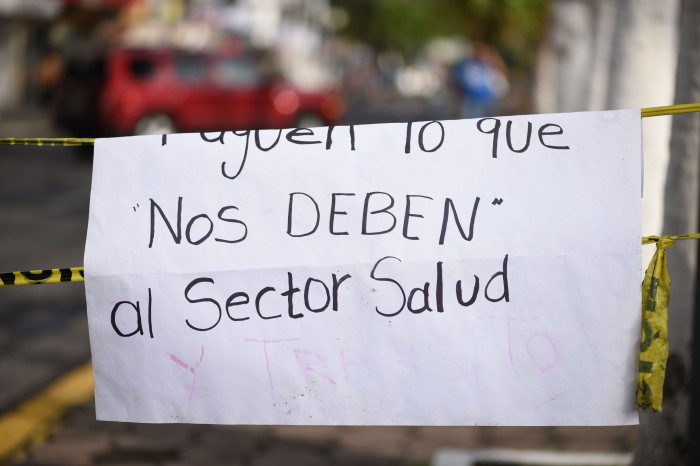 Paguen lo que
"NOS DEBEN"
al Sector Salud
Y